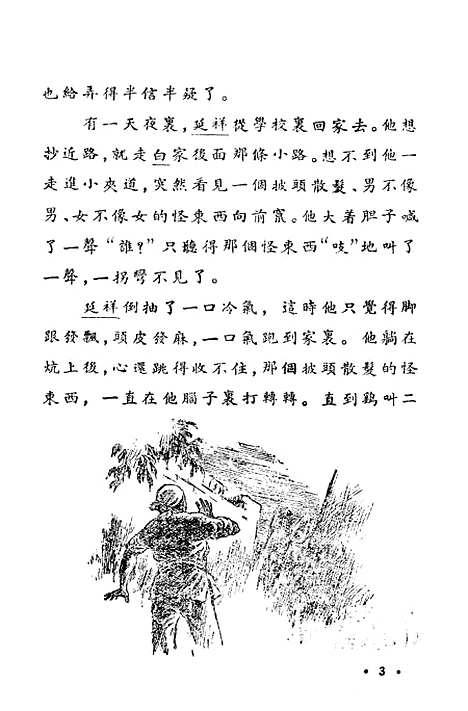 也給弄得半信半疑了。
有一天夜裏，延祥從學校裏回家去。他想
抄近路，就走白家後面那條小路。想不到他一
走進小夾道，突然看見一個披頭散髮、男不像
男、女不像女的怪東西向前竄。他大着胆子喊
了一聲“誰？”只聽得那個怪東西“吱”地叫了
一聲，一拐彎不見了。
延祥倒抽了一口冷氣，這時他只覺得脚
跟發飄，頭皮發麻，一口氣跑到家裏。他躺在
炕上後，心還跳得收不住，那個披頭散髮的怪
東西，一直在他腦子裏打轉轉。直到鷄叫二
• 3 •